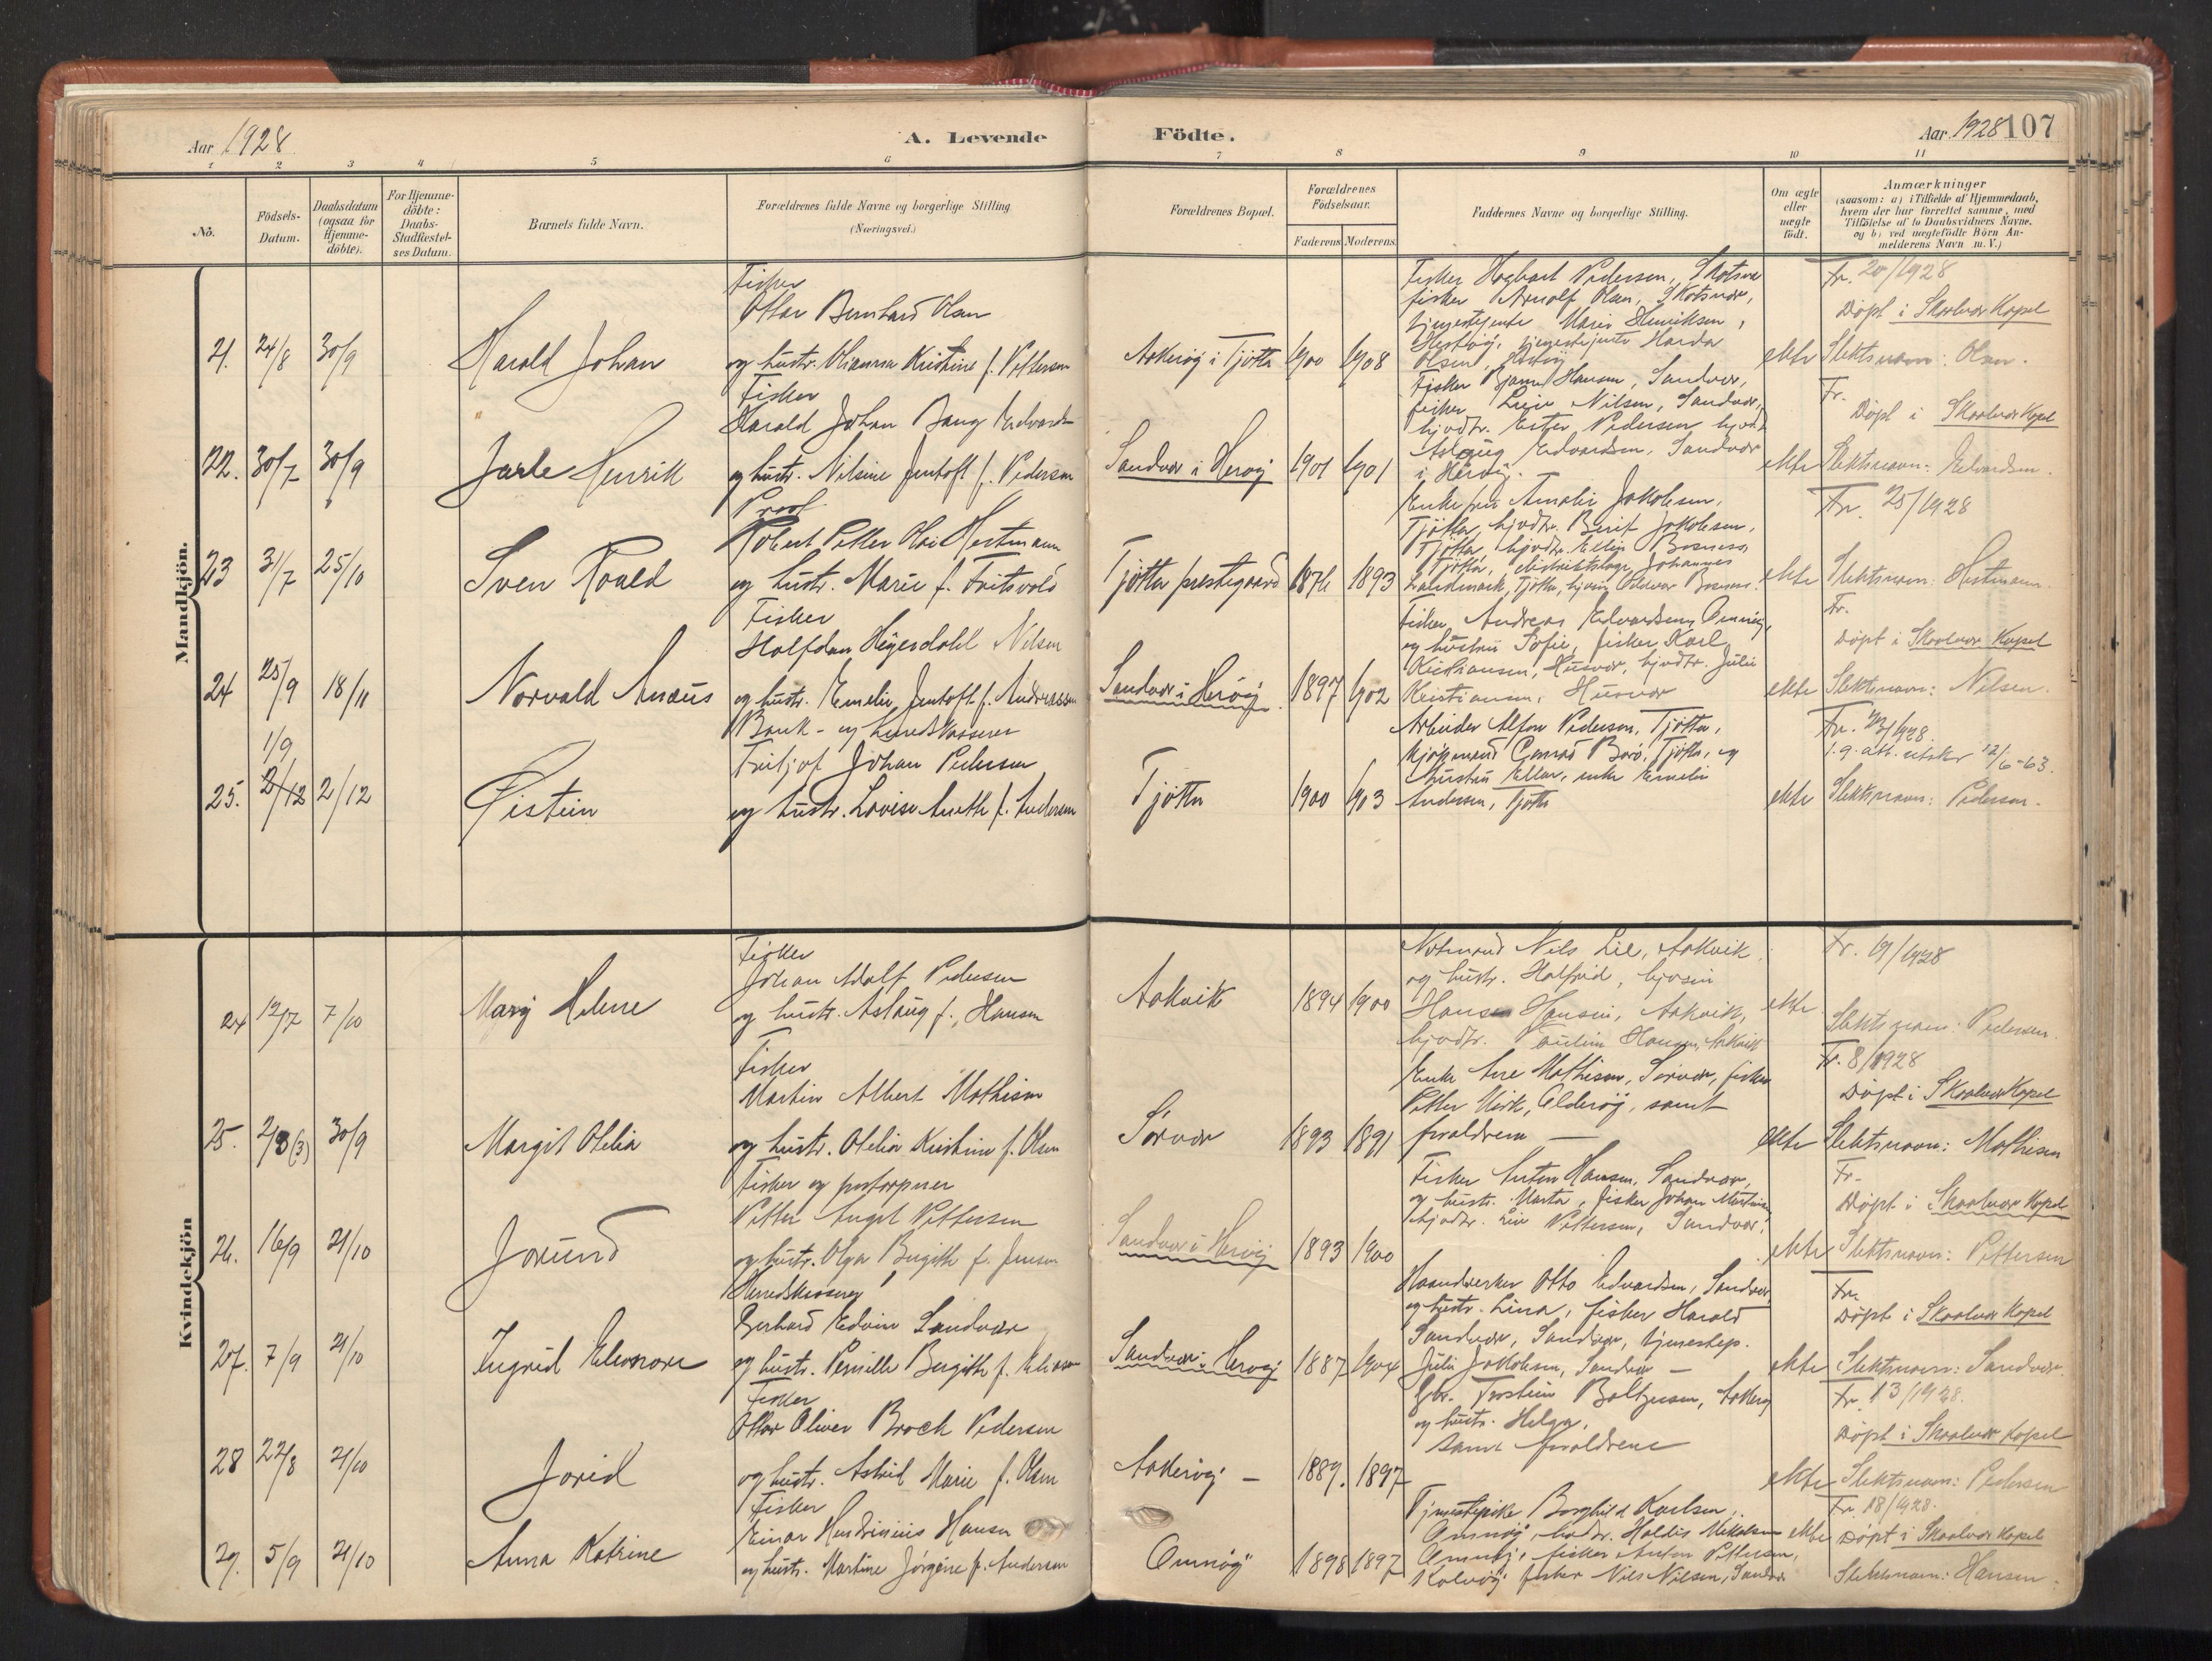 Aar 1928
A. Levende
Födte.
Aar 1928 107
1 2 3 4 5 6 7 8 9 10 11
No.
Födsels-
Datum.
Daabsdatum
(ogsaa for
Hjemme-
döbte).
For Hjemme-
döbte:
Daabs-
Stadfæstel-
ses Datum.
Barnets fulde Navn.
Forældrenes fulde Navne og borgerlige Stilling
(Næringsvei.)
Forældrenes Bopæl.
Forældrenes
Födselsaar.
Faderens Moderens
Faddernes Navne og borgerlige Stilling.
Om ægte
eller
uægte
födt.
Anmærkninger
(saasom: a) i Tilfælde af Hjemmedaab,
hvem der har forrettet samme, med
Tilföielse af to Daabsvidners Navne.
og b) ved uægtefödte Börn An-
melderens Navn m. V.)
Mandkjön.
21. 24/8 30/9
Harald Johan
Fisker
Ottar Bernhard Olsen
og hustr. Olianna Kristine f. Pettersen
Aakerøy i Tjøtta 1900 1908
Fisker Hagbart Pedersen, Skotsvær
fisker Arnolf Olsen, Skotsvær,
tjenestejente Marie Henriksen,
tjenestejente Harda
Olsen,
ekte
Fr. 20/1928
Døpt i Skaalvær Kapel
Slektsnavn: Olsen.
22. 30/7 30/9
Jarle Henrik
Fisker
Harald Johan Bang Edvardsen
og hustr. Nilsine Jentoft f. Pedersen
Sandvær i Herøy 1901 1901
Fisker Bjarne Hansen, Sandvær,
fisker Nilsen, Sandvær,
hjvdtr. Ester Pedersen hjvdtr.
Aslaug Edvardsen, Sandvær
i Herøy.
ekte
Fr.
Døpt i Skaalvær Kapel
Slektsnavn: Edvardsen.
23 31/7 25/10
Sven Roald
Prost
Robert Petter Olai Hestmann
og hustr. Marie f. Fritsvold
Tjøtta prestegaard 1876 1893
Enkefru Amalie Jakobsen,
Tjøtta, hjvdtr. Berit Jakobsen,
Tjøtta, hjvdtr. Ellen
Tjøtta, distriktslæge Johannes
Landmark, Tjøtta,
ekte
Fr. 25/1928
Slektsnavn: Hestmann.
24 25/9 18/11
Norvald Anæus
Fisker
Halfdan Hegerdahl Nilsen
og hustr. Emelie Jentoft f. Andreassen
Sandvær i Herøy 1897 1902
fisker Andreas Edvardsen,
og hustru Sofie, fisker Karl
Kristiansen, Husvær, hjvdtr. Julie
Kristiansen, Husvær
ekte
Fr.
Døpt i Skaalvær Kapel
Slektsnavn: Nilsen.
1/9
25. 2/12 2/12
Øistein
Bank- og herredskasserer
Fritjof Johan Pedersen
og hustr. Lovise Anette f. Andersen
Tjøtta 1900 1903
Arbeider Alfon Pedersen, Tjøtta,
kjøpmand Conrad Barø, Tjøtta, og
hustru Ellen, enke Emelie
Andersen, Tjøtta
ekte
Fr. 23/1928.
f. 1.9. att. utstder 12/6-63.
Slektsnavn: Pedersen.
Kvindekjön
24 12/7 7/10
Mary Helene
Fisker
Johan Adolf Pedersen
og hustr. Aslaug f. Hansen
Aakvik 1894 1900
Nils Lie, Aakvik
og hustr. Halfrid,
Hans Hansen, Aakvik,
hjvdtr. Pauline Hansen, Aakvik
ekte
Fr. 19/1928
Slektsnavn: Pedersen.
25. 2/3 (3) 30/9
Margit Otelia
Fisker
Martin Albert Mathisen
og hustr. Otelia Kristine f. Olsen
Sørvær 1893 1891
Enke Ane Mathisen, Sørvær, fisker
Petter Alderøy, samt
foreldrene —
ekte
Fr. 8/1928
Døpt i Skaalvær Kapel
Slektsnavn: Mathisen
26. 16/9 21/10
Jorund
Fisker og postaapner
Petter Angel Pettersen
og hustr. Olga Birgitte f. Jensen
Sandvær i Herøy 1893 1900
Fisker Anton Hansen, Sandvær,
og hustr. Marta, fisker Johan Martinsen
hjvdtr. Liv Pettersen, Sandvær.
ekte
Fr.
Døpt i Skaalvær Kapel
Slektsnavn: Pettersen
27. 7/9 21/10
Ingrid Eleonore
Herredskasserer
Gerhard Edvin Sandvær
og hustr. Pernille Birgitte f. Eliassen
Sandvær i Herøy 1887 1904
Haandverker Otto Edvardsen, Sandvær
og hustr. Lina, fisker Harald
Sandvær, Sandvær, tjenestep.
Julie Jakobsen, Sandvær —
ekte
Fr.
Døpt i Skaalvær Kapel
Slektsnavn: Sandvær.
28 22/8 21/10
Jorid
Fisker
Ottar Oliver Brock Pedersen
og hustr. Astrid Marie f. Olsen
Aakerøy — 1889. 1897
Gbr. Torstein Baltzersen, Aakerøy
og hustr. Helga,
samt foreldrene
ekte
Fr. 13/1928.
Døpt i Skaalvær Kapel
Slektsnavn: Pedersen
29. 5/9 21/10
Anna Katrine
Fisker
Einar Hendrinius Hansen
og hustr. Martine Jørgine f. Andersen
Omnøy 1898 1897
Tjenestepike Borghild Karlsen,
Omnøy, hvdtr. Haldis Mikalsen
Omnøy, fisker Anton Pettersen,
Kalvøy fisker Nils Nilsen, Sandvær
ekte
Fr. 18/1928.
Døpt i Skaalvær Kapel
Slektsnavn: Hansen.